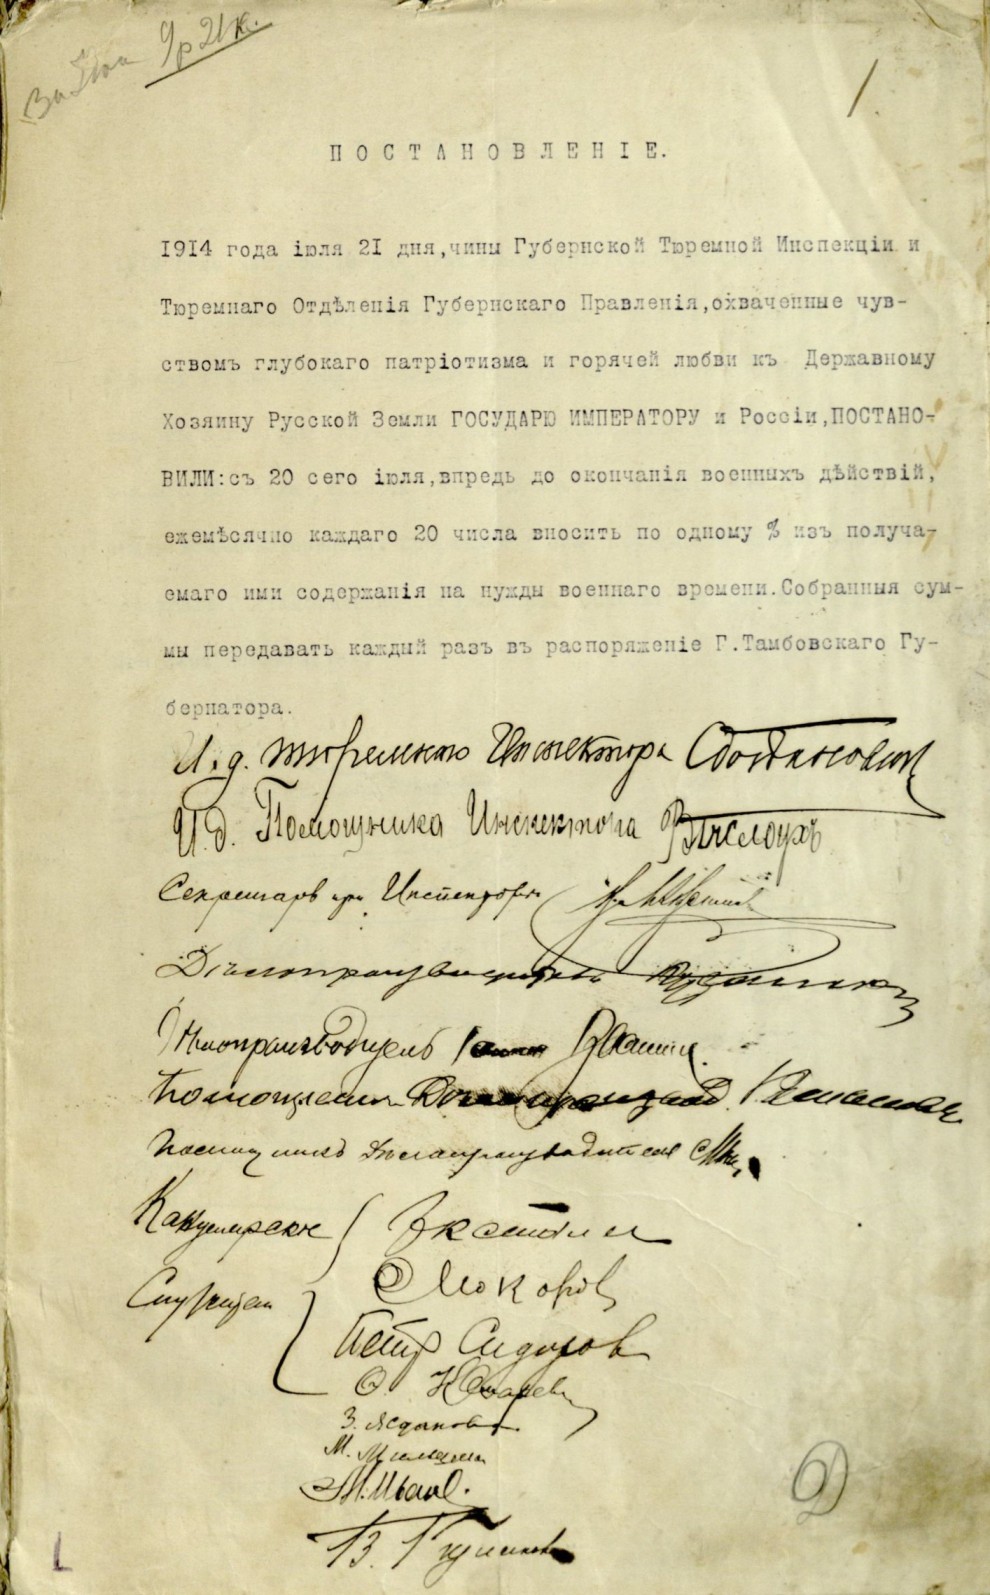 9р 21к.
1.
ПОСТАНОВЛЕНІЕ.
1914 года іюля 21 дня,чины Губернской Тюремной Инспекціи и
Тюремнаго Отдѣленія Губернскаго Правленія,охваченные чув-
ствомъ глубокаго патріотизма и горячей любви къ Державному
Хозяину Русской Земли ГОСУДАРЮ ИМПЕРАТОРУ и Россіи,ПОСТАНО-
ВИЛИ:съ 20 сего іюля,впредь до окончанія военныхъ дѣйствій,
ежемѣсячно каждаго 20 числа вносить по одному % изъ получа-
емаго ими содержанія на нужды военнаго времени.Собранныя сум-
мы передавать каждый разъ въ распоряженіе Г.Тамбовскаго Гу-
бернатора.
И.д. Тюремнаго Инспектора
И.д. Помощника Инспектора Вислоухъ
Секретарь при Инспекторѣ
Дѣлопроизводитель
Дѣлопроизводитель
Помощникъ
Помощникъ Дѣлопроизводителя
Канцелярскіе
Служители
О Мокоров
Петр Сидоров
О.
З.
М.
М. Иванов.
В.